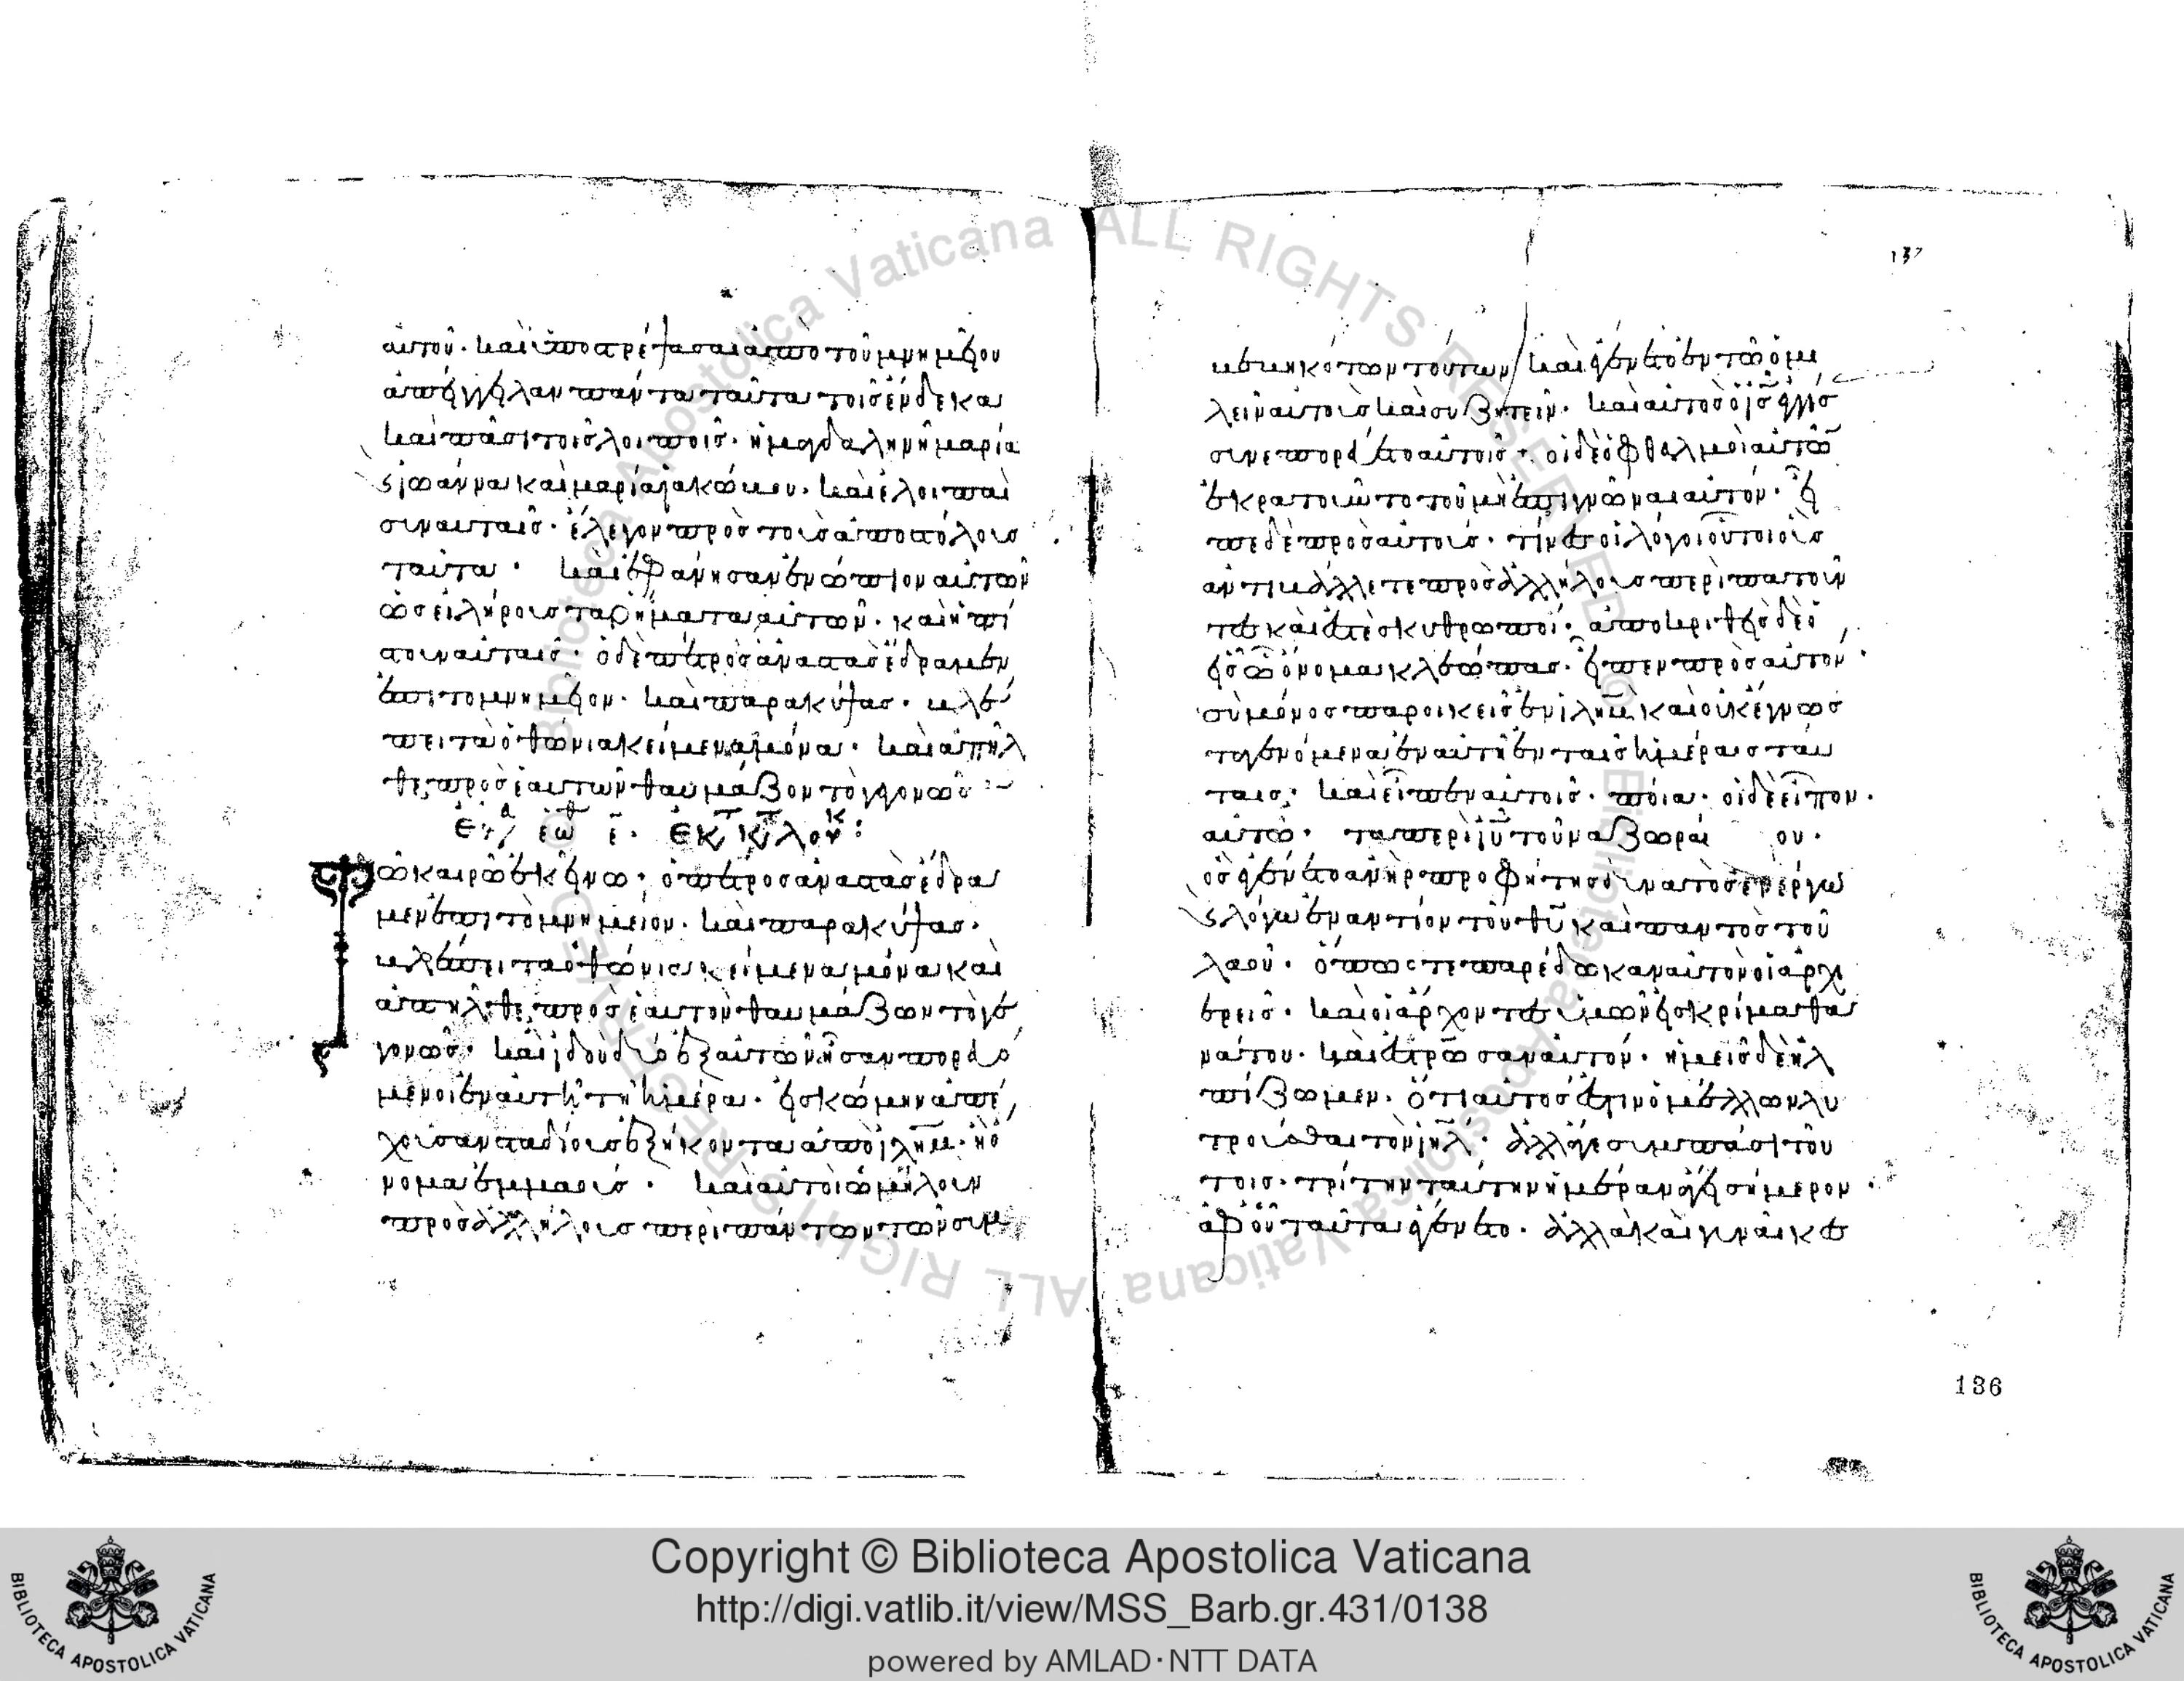 αυτοῦ· καὶ ὑποστρέψασαι ἀπὸ τοῦ μνημείου
ἀπήγγειλαν πάντα ταῦτα τοῖς ἕνδεκα
καὶ πᾶσι τοῖς λοιποῖς· ἡ μαγδαληνὴ μαρία
ϛ ἰωάννα καὶ μαρία ἰακώβου· καὶ ἑ λοιπαὶ
σὺν αυταῖς· ἔλεγον πρὸς τοὺς ἀποστόλους
ταῦτα· καὶ ἐφάνησαν ἐνώπιον αὐτῶν
ὡσεὶ λῆρος τὰ ῥήματα αὐτῶν· καὶ ἠπί
στουν αὐταῖς· ὁ δὲ πέτρος ἀναστὰς ἔδραμεν
ἐπι το μνημεῖον· καὶ παρακύψας· βλέ
πει τὰ ὀθώνια κείμενα μόνα· καὶ ἀπῆλ
θε πρὸς ἑαυτὼν θαυμάζον τὸ γεγονὼς
ἑωθ ε̄· ἐκ τ κτ λουκ:
Τῶ καιρῶ ἐκείνω· ὁ πέτρος ἀναστὰς ἔδρα
μεν ἐπι τὸ μνημεῖον· καὶ παρακύψας·
βλέπει τὰ ὀθώνια κείμενα μόνα καὶ
ἀπῆλθε πρὸς ἑαυτὸν θαυμάζων τὸ γε
γονὼς· καὶ ἰδοὺ δύο ἐξ αὐτῶν ἦσαν πορευό
μενοι ἐν αὐτῆ τῆ ἡμέρα· εἰς κώμην ἀπέ
χουσαν σταδίους ἑξήκοντα ἀπὸ ἰλημ· ἧ ὄ
νομα ἐμμαούς· καὶ αὐτοὶ ὡμίλουν
πρὸς ἀλλήλους περὶ πάντων τῶν συμ
137
βεβηκότων τούτων καὶ ἐγένετο ἐν τῶ ὁμι
λεῖν αὐτοὺς καὶ συζητεῖν· καὶ αὐτὸς ὁ ις ἐγγίσ
συνεπορεύετο αὐτοῖς· οἱ δὲ ὀφθαλμοὶ αὐτῶ
ἐκρατοῦντο τοῦ μὴ ἐπιγνῶναι αὐτόν· εἶ
πε δὲ πρὸς αὐτούς· τίνες οἱ λόγοι οὗτοι οὓς
ἀντιβάλλετε πρὸς ἀλλήλους περιπατοῦν
τες καὶ ἐστὲ σκυθρωποί· ἀποκριθεὶς δὲ ὁ
εἷς ὧ ὄνομα κλεώπας· εἶπεν πρὸς αὐτον
σὺ μόνος παροικεῖς ἐν ἰλημ καὶ οὐκ ἔγνως
τα γενόμενα ἐν αὐτῆ ἐν ταῖς ἡμέραις ταύ
ταις· καὶ εἶπεν αὐτοῖς· ποῖα· οἱ δὲ εἶπον·
αὐτῶ· τὰ περὶ ιυ τοῦ ναζωραί ου·
ὃς ἐγένετο ἀνὴρ προφήτης δυνατὸς ἐν ἔργω
ϛ λόγω ἐναντίον τοῦ θυ καὶ παντὸς τοῦ
λαοῦ· ὅπως τε παρέδωκαν αὐτὸν οἱ ἀρχι
ερεῖς· καὶ οἱ ἄρχοντες ἡμῶν εἰς κρίμα θα
νάτου· καὶ ἐστρωσαν αὐτόν· ἡμεῖς δὲ ἠλ
πίζωμεν· ὅτι αὐτός ἐστιν ὁ μέλλων λυ
τροῦσθαι τὸν ιηλ· ἀλλά γε συν πᾶσι τού
τοις· τρίτην ταύτην ἡμέραν ἄγει σήμερον·
ἀφ οὗ ταῦτα ἐγένετο· ἀλλὰ καὶ γυναῖκες
136
Copyright © Biblioteca Apostolica Vaticana
http://digi.vatlib.it/view/MSS_Barb.gr.431/0138
powered by AMLAD·NTT DATA
BIBLIOTECA APOSTOLICA VATICANA
BIBLIOTECA APOSTOLICA VATICANA